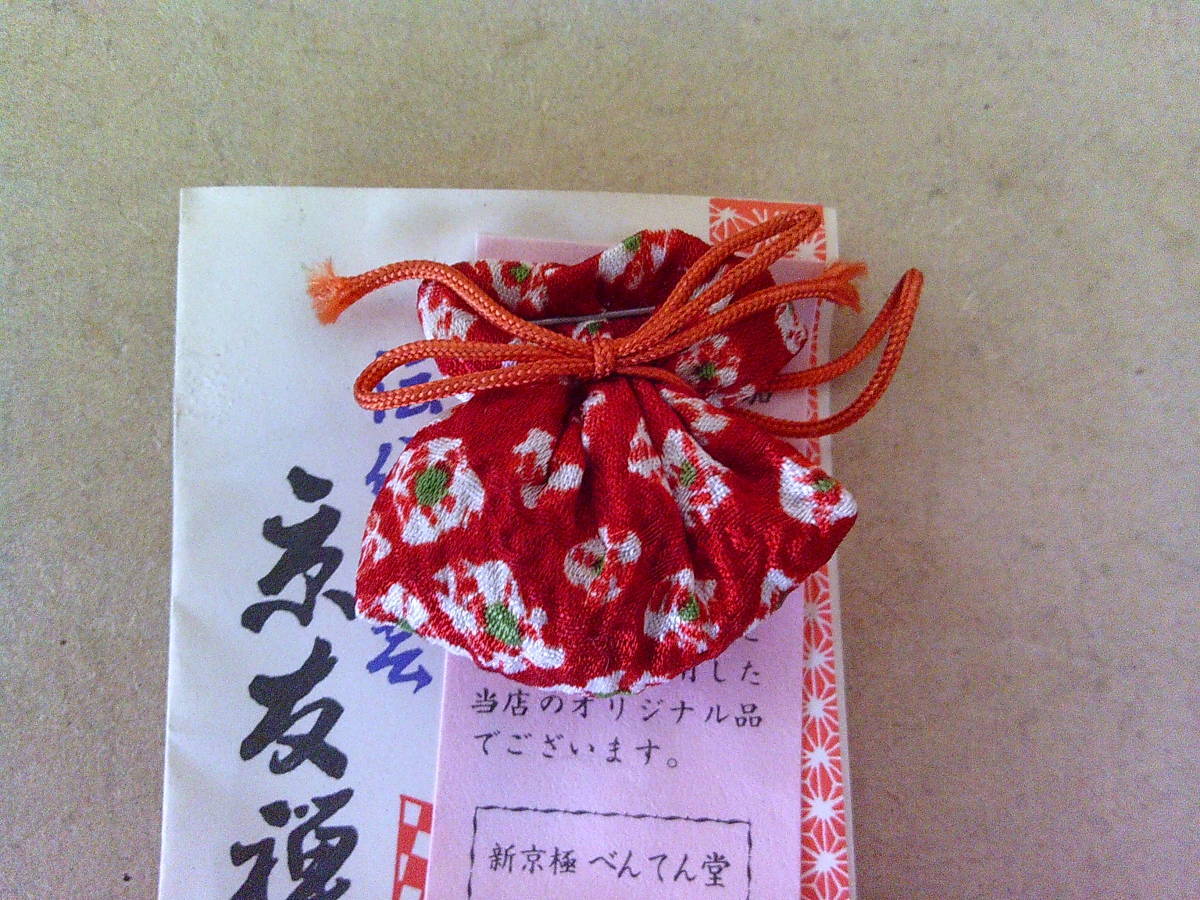 京友禅
した
当店のオリジナル品
でございます。
新京極 べんてん堂